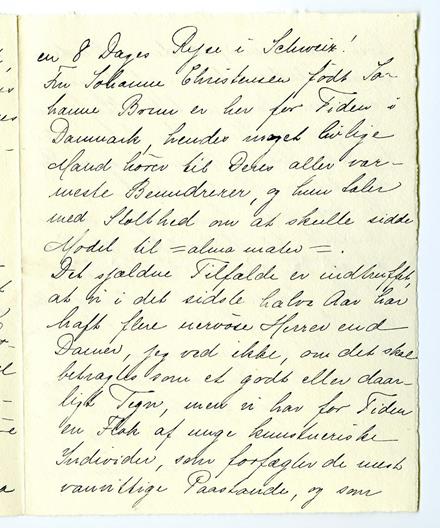 en 8 Dages Rejse i Schweiz!
Fru Johanne Christensen født Jo-
hanne Bruun er her for Tiden i
Danmark, hendes meget livlige
Mand hører til Deres aller var-
meste Beundrerer, og hun taler
med Stolthed om at skulle sidde
Model til =alma mater=.
Det sjældne Tilfælde er indtruffet,
at vi i det sidste halve Aar har
haft flere nervøse Herrer end
Damer, jeg ved ikke, om det skal
betragtes som et godt eller daar-
ligt Tegn, men vi har for Tiden
en Flok af unge kunstneriske
Individer, som forfægter de mest
vanvittige Paastande, og som